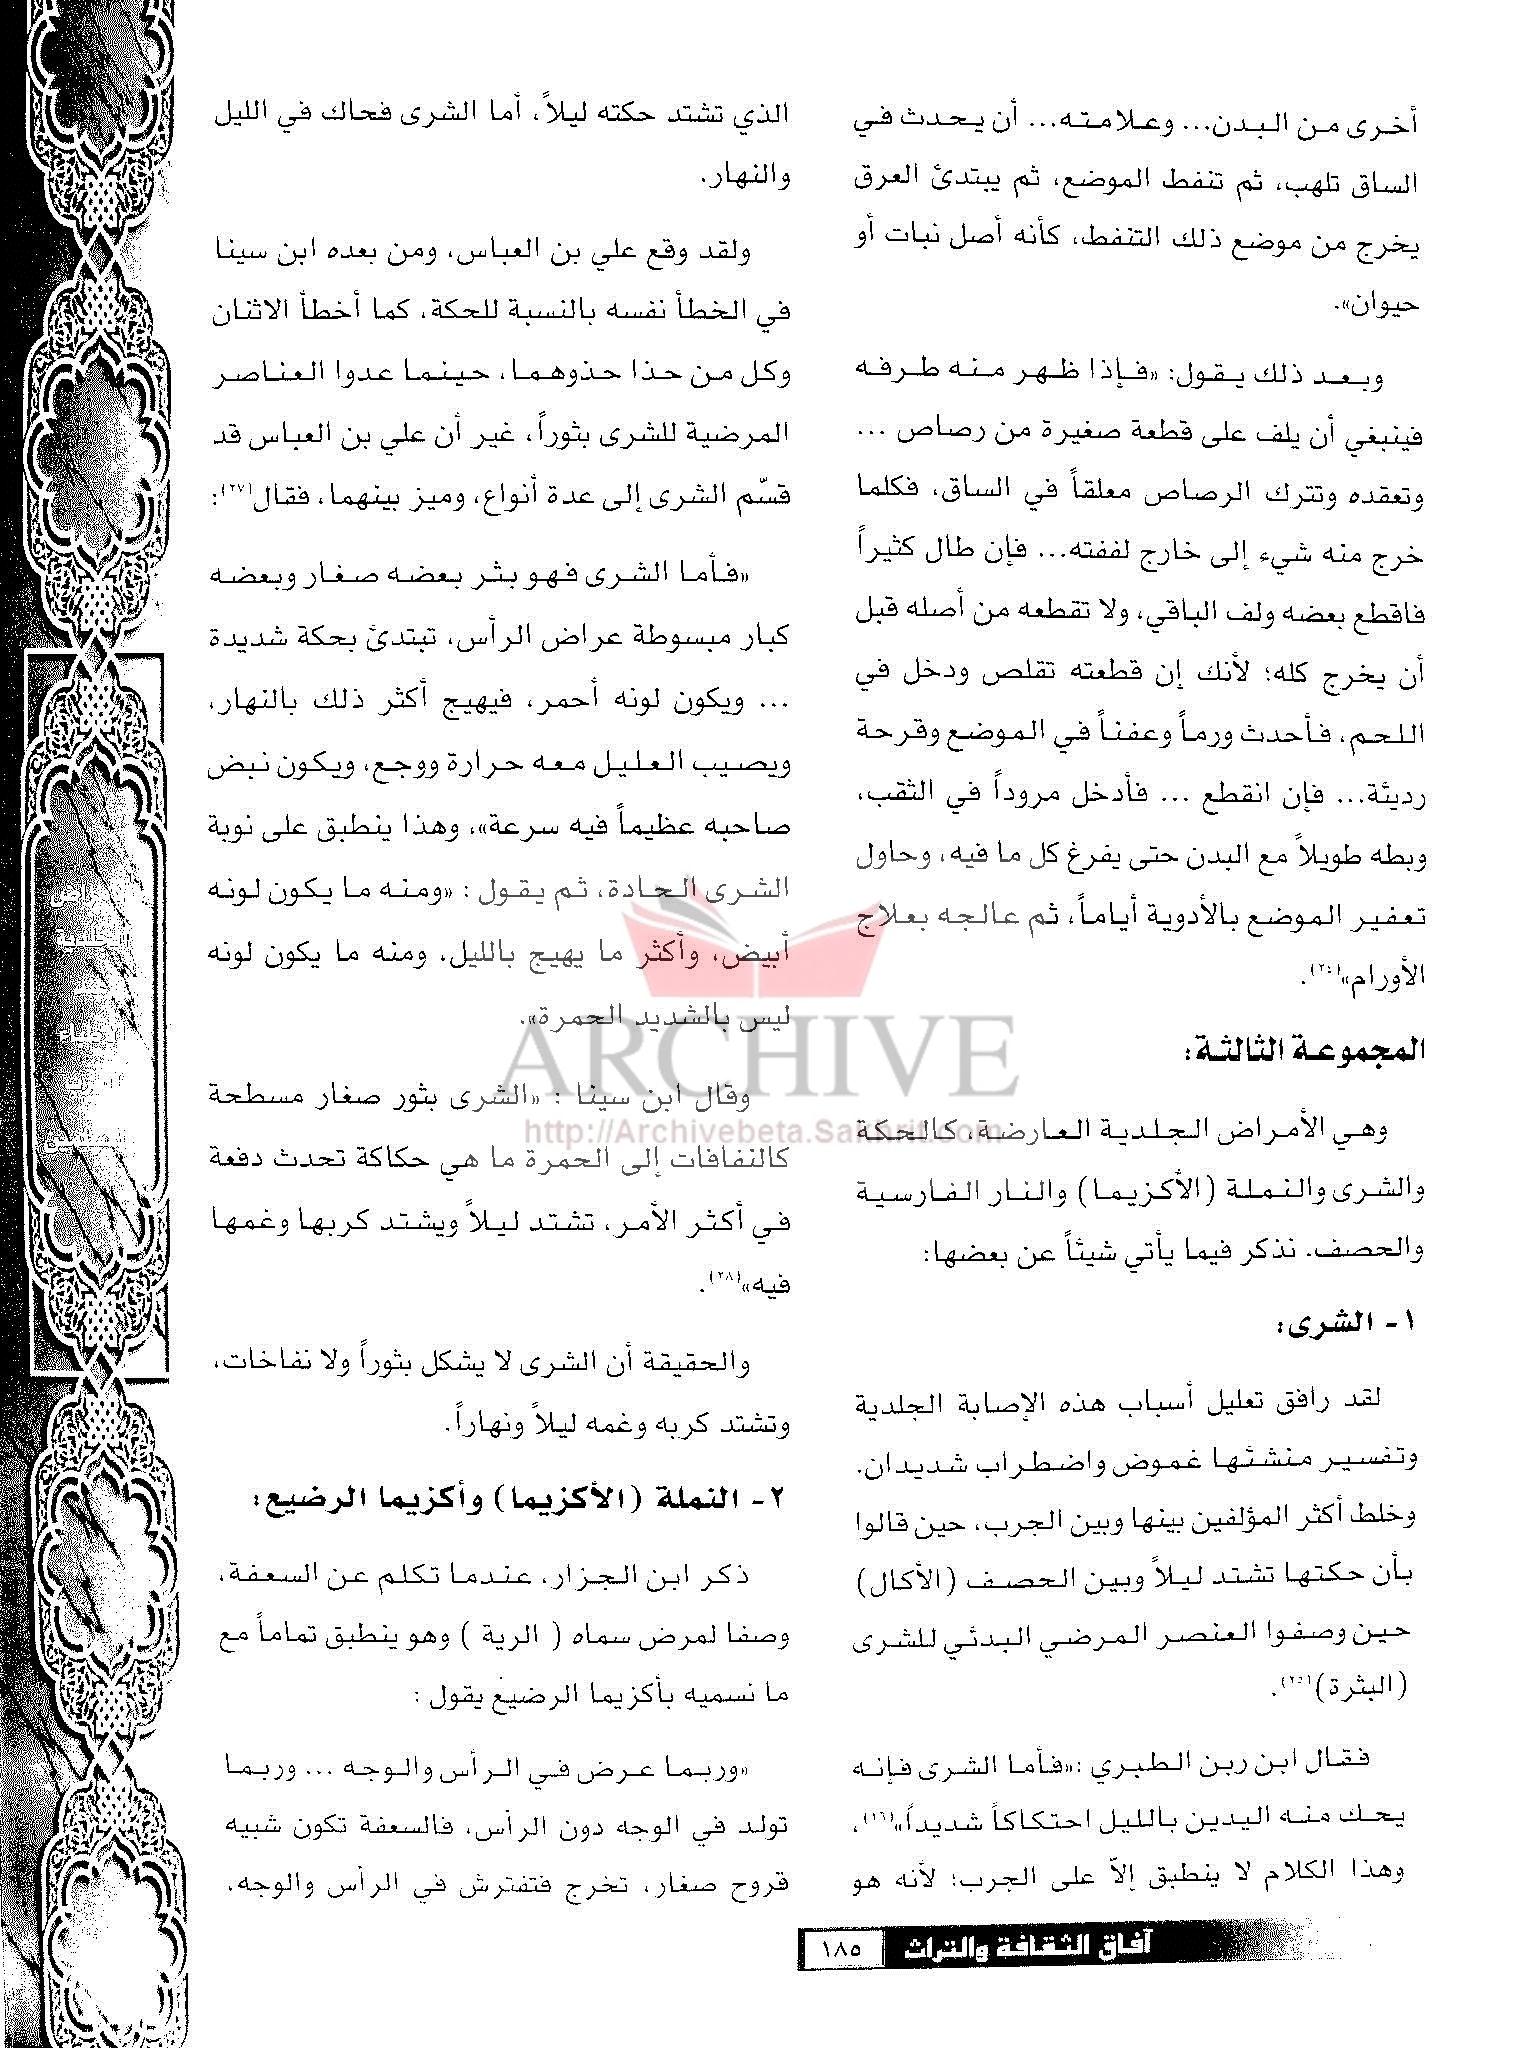 أخرى من البدن... وعلامته... أن يحدث في
الساق تلهب، ثم تنفط الموضع، ثم يبتدئ العرق
يخرج من موضع ذلك التنفط، كأنه أصل نبات أو
حيوان».
وبعد ذلك يقول: «فإذا ظهر منه طرفه
فينبغي أن يلف على قطعة صغيرة من رصاص ...
وتعقده وتترك الرصاص معلقاً في الساق، فكلما
خرج منه شيء إلى خارج لففته... فإن طال كثيراً
فاقطع بعضه ولف الباقي، ولا تقطعه من أصله قبل
أن يخرج كله؛ لأنك إن قطعته تقلص ودخل في
اللحم، فأحدث ورماً وعفناً في الموضع وقرحة
رديئة... فإن انقطع ... فأدخل مروداً في الثقب،
وبطه طويلاً مع البدن حتى يفرغ كل ما فيه، وحاول
تعفير الموضع بالأدوية أياماً، ثم عالجه بعلاج
الأورام»(٢٤).
المجموعة الثالثة:
وهي الأمراض الجلدية العارضة، كالحكة
والشرى والنملة (الأكزيما) والنار الفارسية
والحصف. نذكر فيما يأتي شيئاً عن بعضها:
١- الشرى:
لقد رافق تعليل أسباب هذه الإصابة الجلدية
وتفسير منشئها غموض واضطراب شديدان.
وخلط أكثر المؤلفين بينها وبين الجرب، حين قالوا
بأن حكتها تشتد ليلاً وبين الحصف (الأكال)
حين وصفوا العنصر المرضي البدئي للشرى
(البثرة)(٢٥).
فقال ابن ربن الطبري :«فأما الشرى فإنه
يحك منه اليدين بالليل احتكاكاً شديداً»(٢٦)،
وهذا الكلام لا ينطبق إلاّ على الجرب؛ لأنه هو
الذي تشتد حكته ليلاً، أما الشرى فحاك في الليل
والنهار.
ولقد وقع علي بن العباس، ومن بعده ابن سينا
في الخطأ نفسه بالنسبة للحكة، كما أخطأ الاثنان
وكل من حذا حذوهما، حينما عدوا العناصر
المرضية للشرى بثوراً، غير أن علي بن العباس قد
قسّم الشرى إلى عدة أنواع، وميز بينهما، فقال(٢٧):
«فأما الشرى فهو بثر بعضه صغار وبعضه
كبار مبسوطة عراض الرأس، تبتدئ بحكة شديدة
... ويكون لونه أحمر، فيهيج أكثر ذلك بالنهار،
ويصيب العليل معه حرارة ووجع، ويكون نبض
صاحبه عظيماً فيه سرعة»، وهذا ينطبق على نوبة
الشرى الحادة، ثم يقول : «ومنه ما يكون لونه
أبيض، وأكثر ما يهيج بالليل، ومنه ما يكون لونه
ليس بالشديد الحمرة».
وقال ابن سينا : «الشرى بثور صغار مسطحة
كالنفافات إلى الحمرة ما هي حكاكة تحدث دفعة
في أكثر الأمر، تشتد ليلاً ويشتد كربها وغمها
فيه»(٢٨).
والحقيقة أن الشرى لا يشكل بثوراً ولا نفاخات،
وتشتد كربه وغمه ليلاً ونهاراً.
٢- النملة (الأكزيما) وأكزيما الرضيع:
ذكر ابن الجزار، عندما تكلم عن السعفة،
وصفا لمرض سماه ( الرية ) وهو ينطبق تماماً مع
ما نسميه بأكزيما الرضيع يقول :
«وربما عرض في الرأس والوجه ... وربما
تولد في الوجه دون الرأس، فالسعفة تكون شبيه
قروح صغار، تخرج فتفترش في الرأس والوجه،
ARCHIVE
آفاق الثقافة والتراث
١٨٥